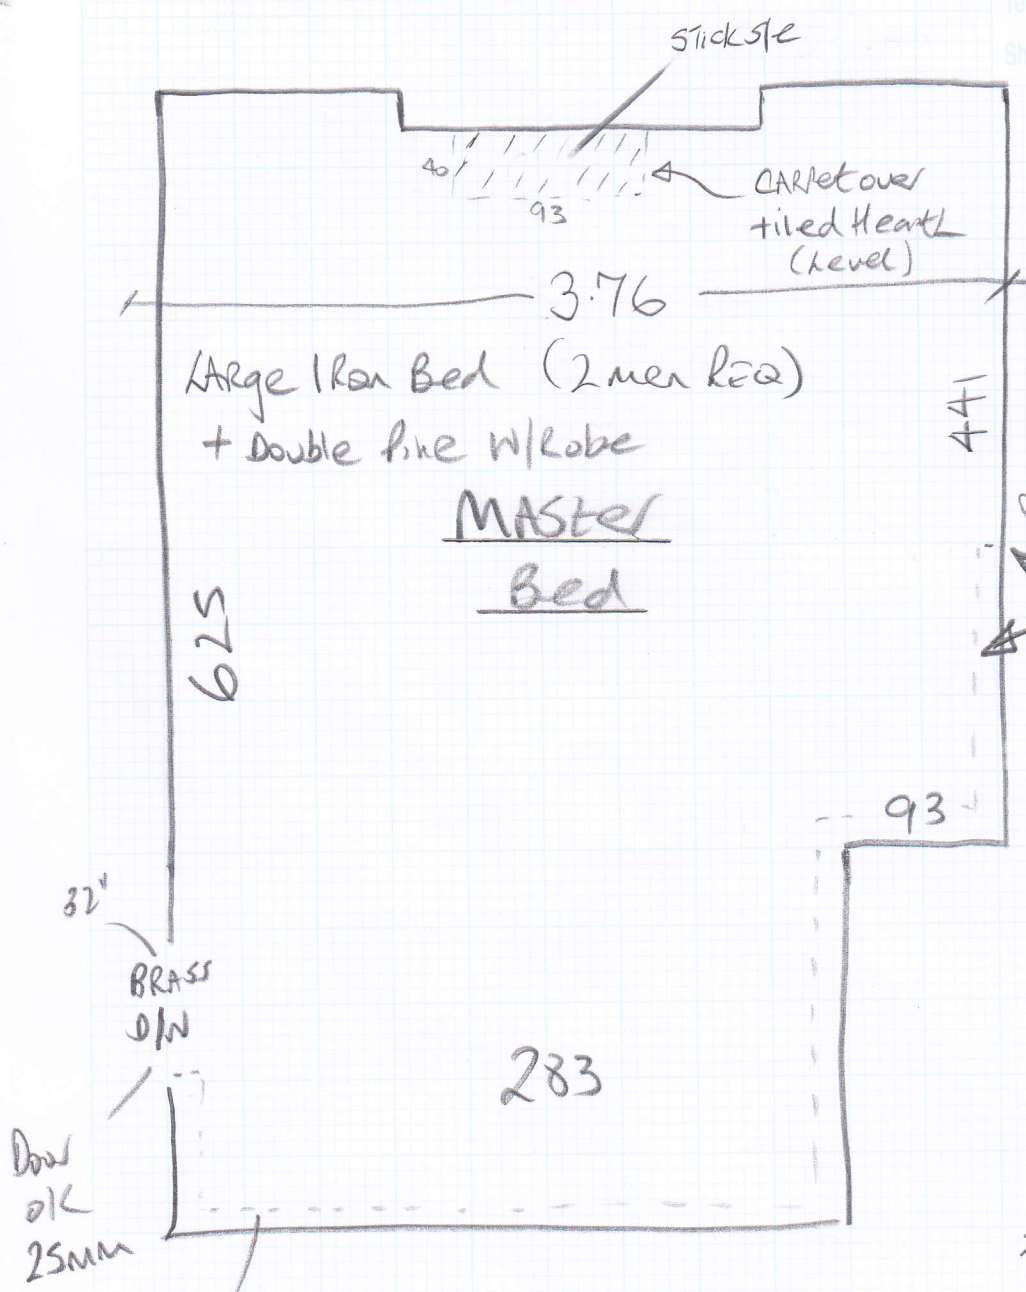 40
93
CARPet over
tiled Hearth
(Level)
3.76
LARge IRon Bed (2 men REQ)
+ Double Pine W/Robe
441
MASter
Bed
625
93
32"
BRASS
D/W
283
Door
OK
25mm